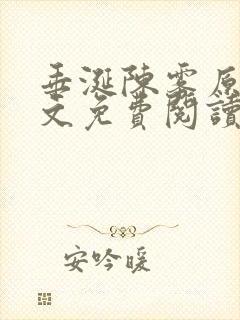 垂涎陳霧原
文免費閱讀
安吟暖